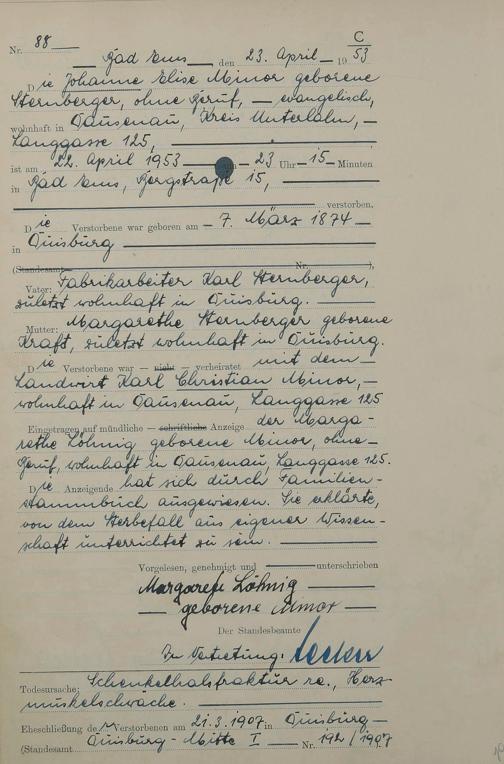 C
Nr. 88
Bad Ems, den 23. April 1953
Die Johanne Elise Minor geborene
Sternberger, ohne Beruf, – evangelisch,
wohnhaft in Dausenau, Kreis Unterlahn, –
Langgasse 125,
ist am 22. April 1953 um 23 Uhr 15 Minuten
in Bad Ems, Bergstraße 15,
verstorben.
Die Verstorbene war geboren am 7. März 1874
in Duisburg
(Standesamt Nr. ),
Vater: Fabrikarbeiter Karl Sternberger,
zuletzt wohnhaft in Duisburg.
Mutter: Margarethe Sternberger geborene
Kraft, zuletzt wohnhaft in Duisburg.
Die Verstorbene war – nicht – verheiratet mit dem
Landwirt Karl Christian Minor, –
wohnhaft in Dausenau, Langgasse 125
Eingetragen auf mündliche – schriftliche Anzeige der Marga-
rethe Löhnig geborene Minor, ohne
Beruf, wohnhaft in Dausenau, Langgasse 125.
Die Anzeigende hat sich durch Familien-
stammbuch ausgewiesen. Sie erklärte,
von dem Sterbefall aus eigener Wissen-
schaft unterrichtet zu sein.
Vorgelesen, genehmigt und unterschrieben
Margarete Löhnig
geborene Minor
Der Standesbeamte
In Vertretung:
Todesursache: Schenkelhalsfraktur re., Herz-
muskelschwäche.
Eheschließung der Verstorbenen am 21.3.1907 in Duisburg
(Standesamt Duisburg-Mitte I Nr. 192/1907